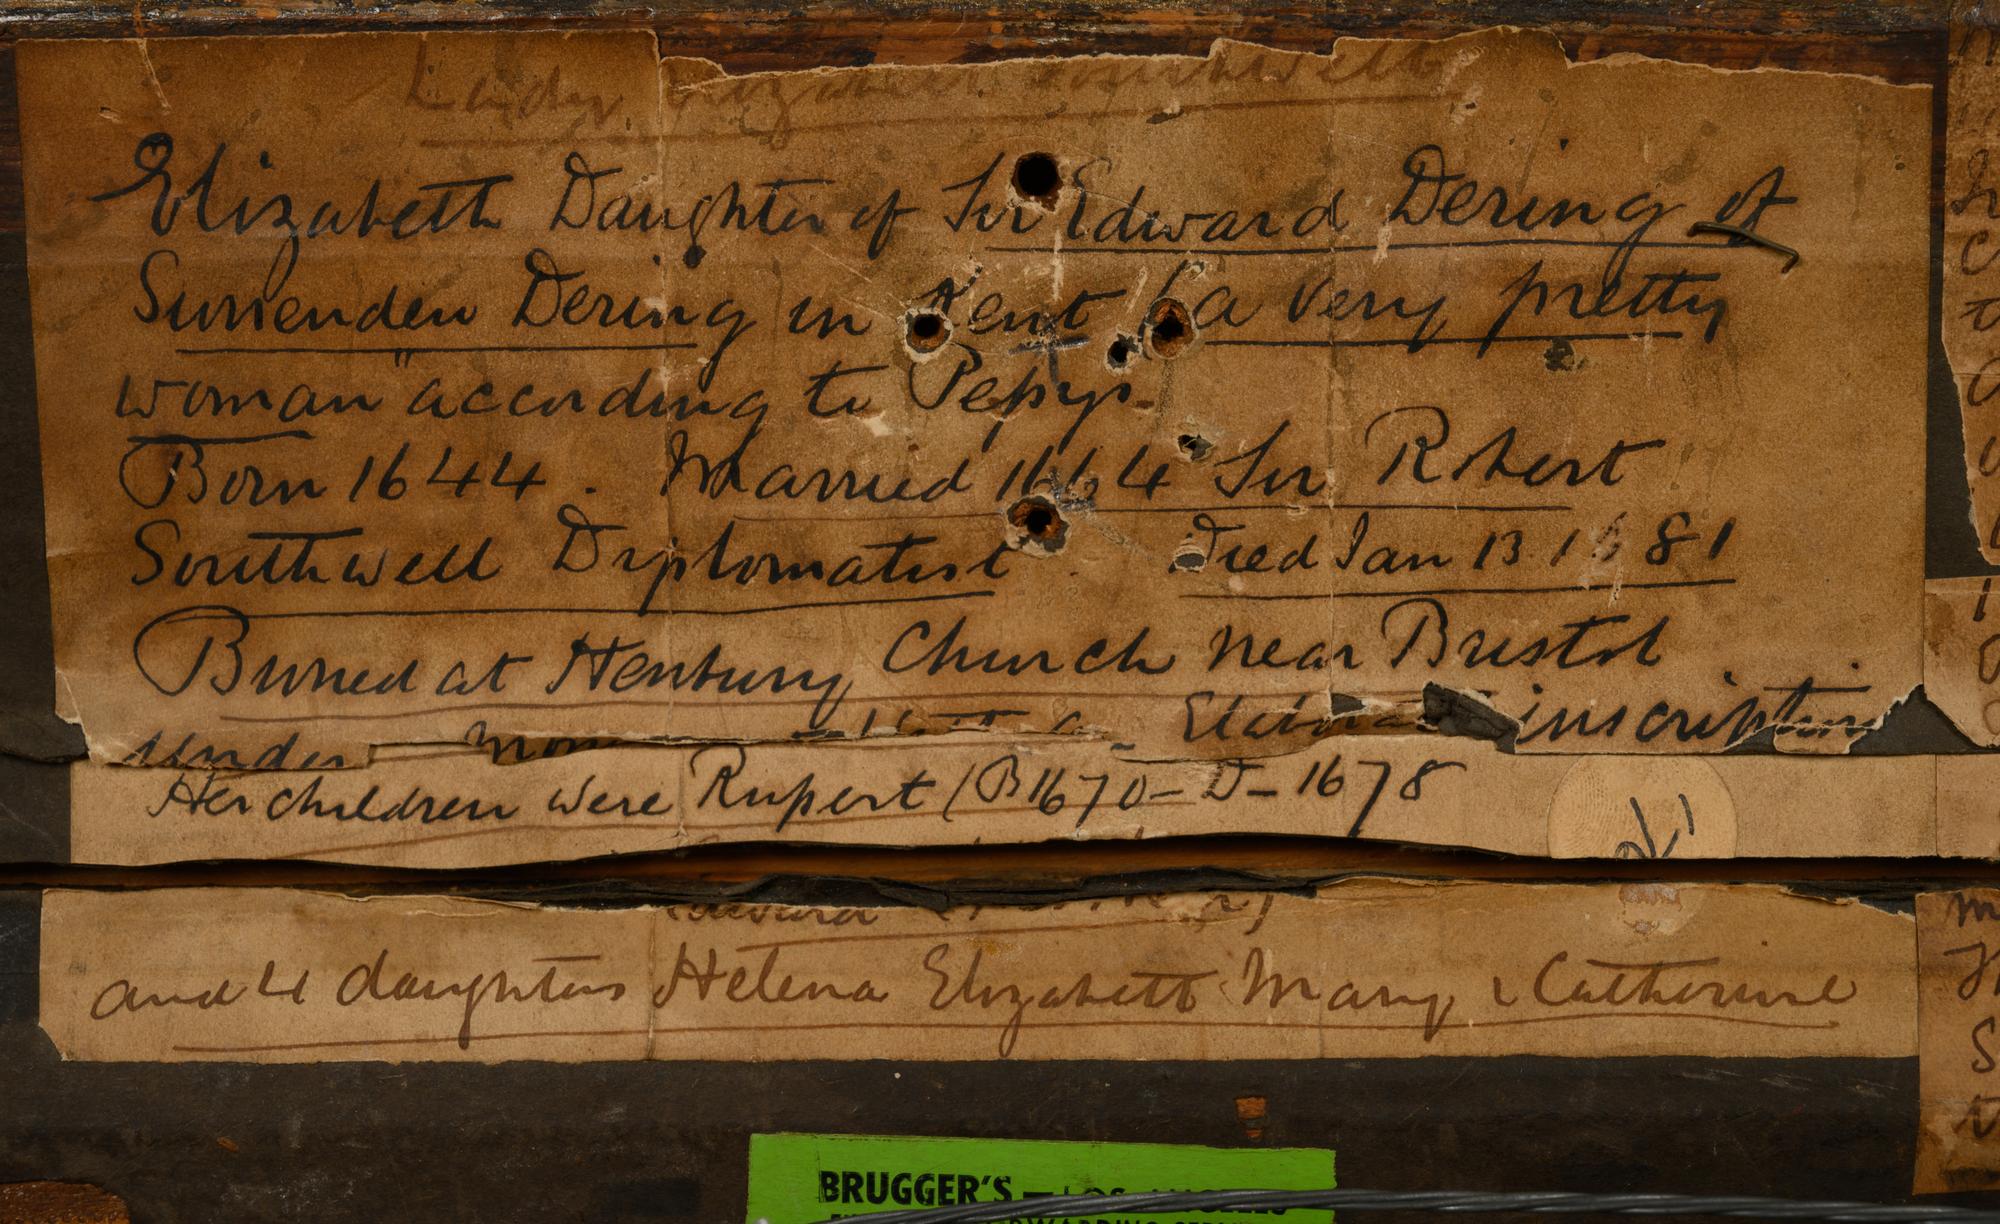 Lady Elizabeth Southwell
Elizabeth Daughter of Sir Edward Dering of
Surrenden Dering in Kent (a very pretty
woman" according to Pepys.
Born 1644. Married 1664 Sir Robert
Southwell Diplomatist. Died Jan 13 1681
Buried at Henbury Church near Bristol
under inscription
Her children were Rupert (B 1670 - D - 1678
Edward
and 4 daughters Helena Elizabeth Mary & Catherine
BRUGGER'S — LOS ANGELES